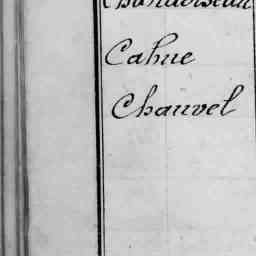 Cahue
Chauvel